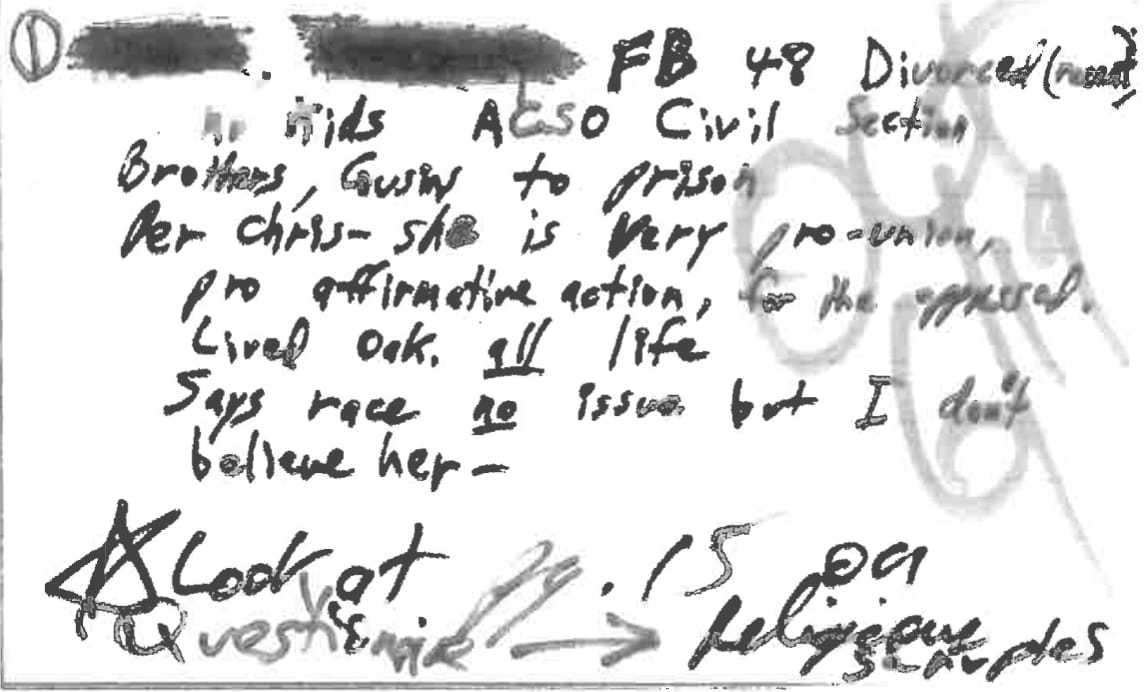 ① FB 48 Divorced (recent)
no Kids ACSO Civil Section
Brothers, Cusins to prison
Per Chris- she is very pro-union,
pro affirmative action, for the oppressed.
Lived Oak. all life
Says race no issue but I don't
believe her -
☆ Look at pg. 15 on
Religious scruples